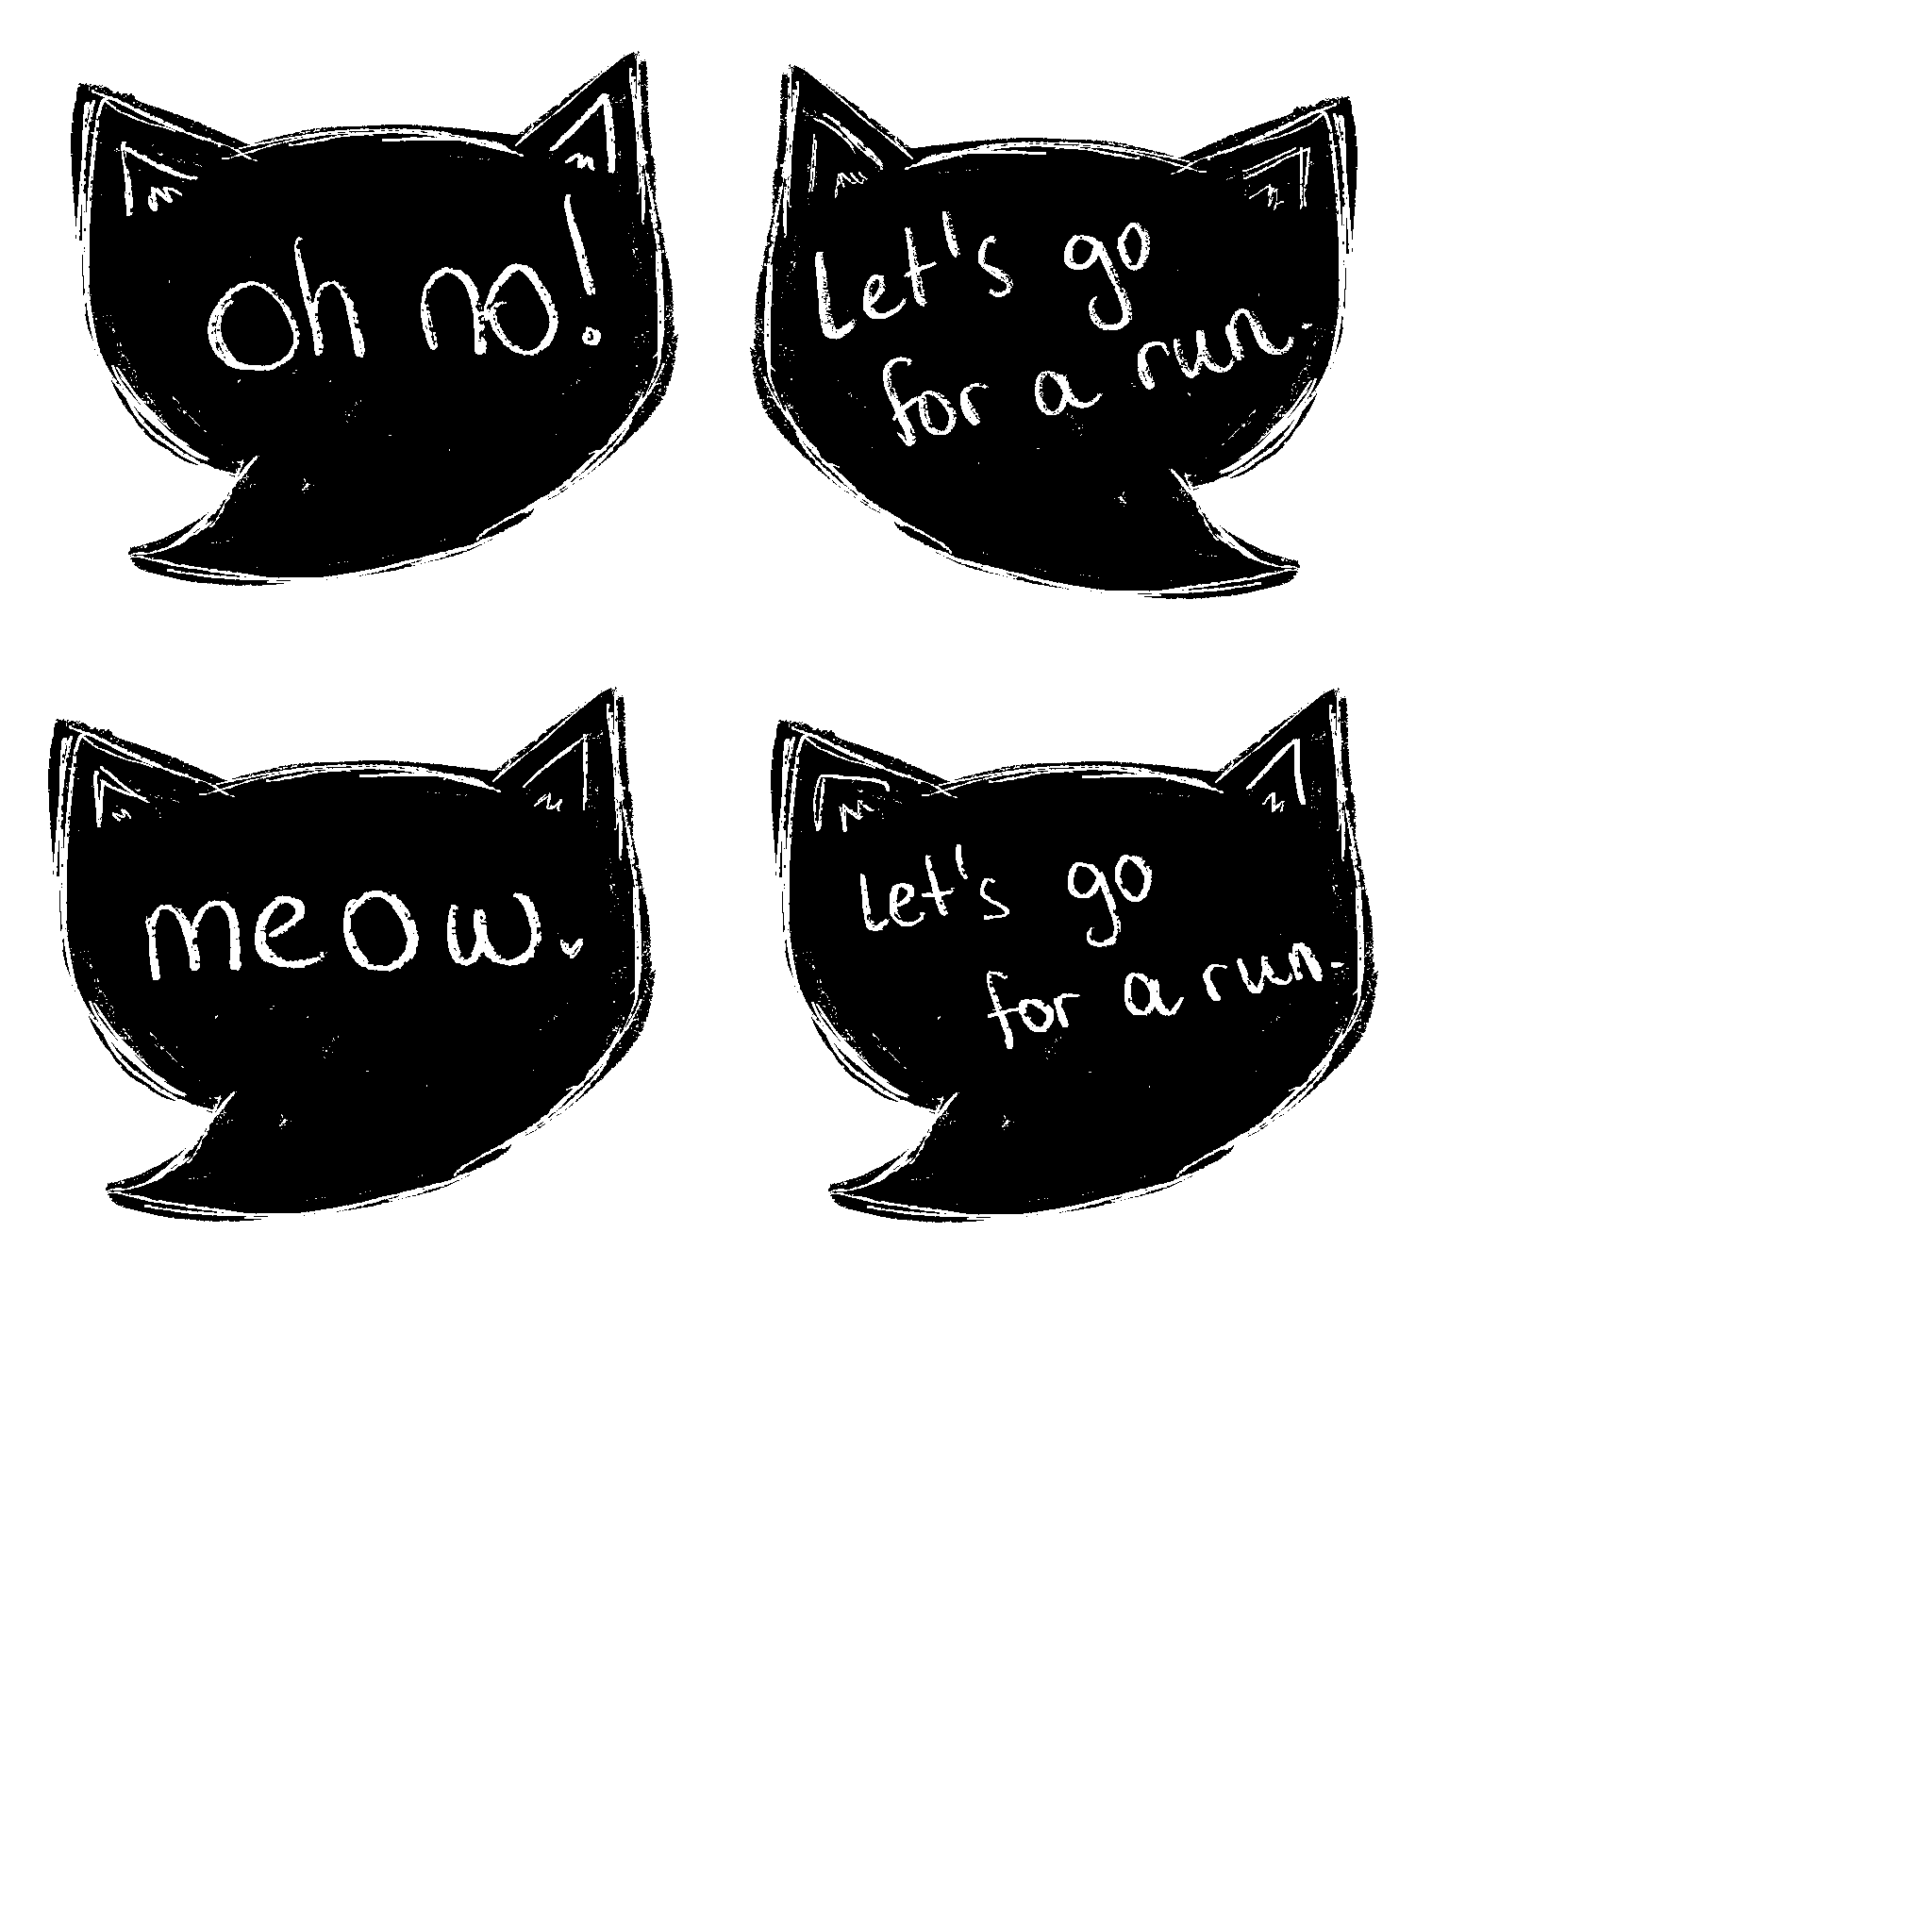 oh no!
Let's go
for a run.
meow.
Let's go
for a run.